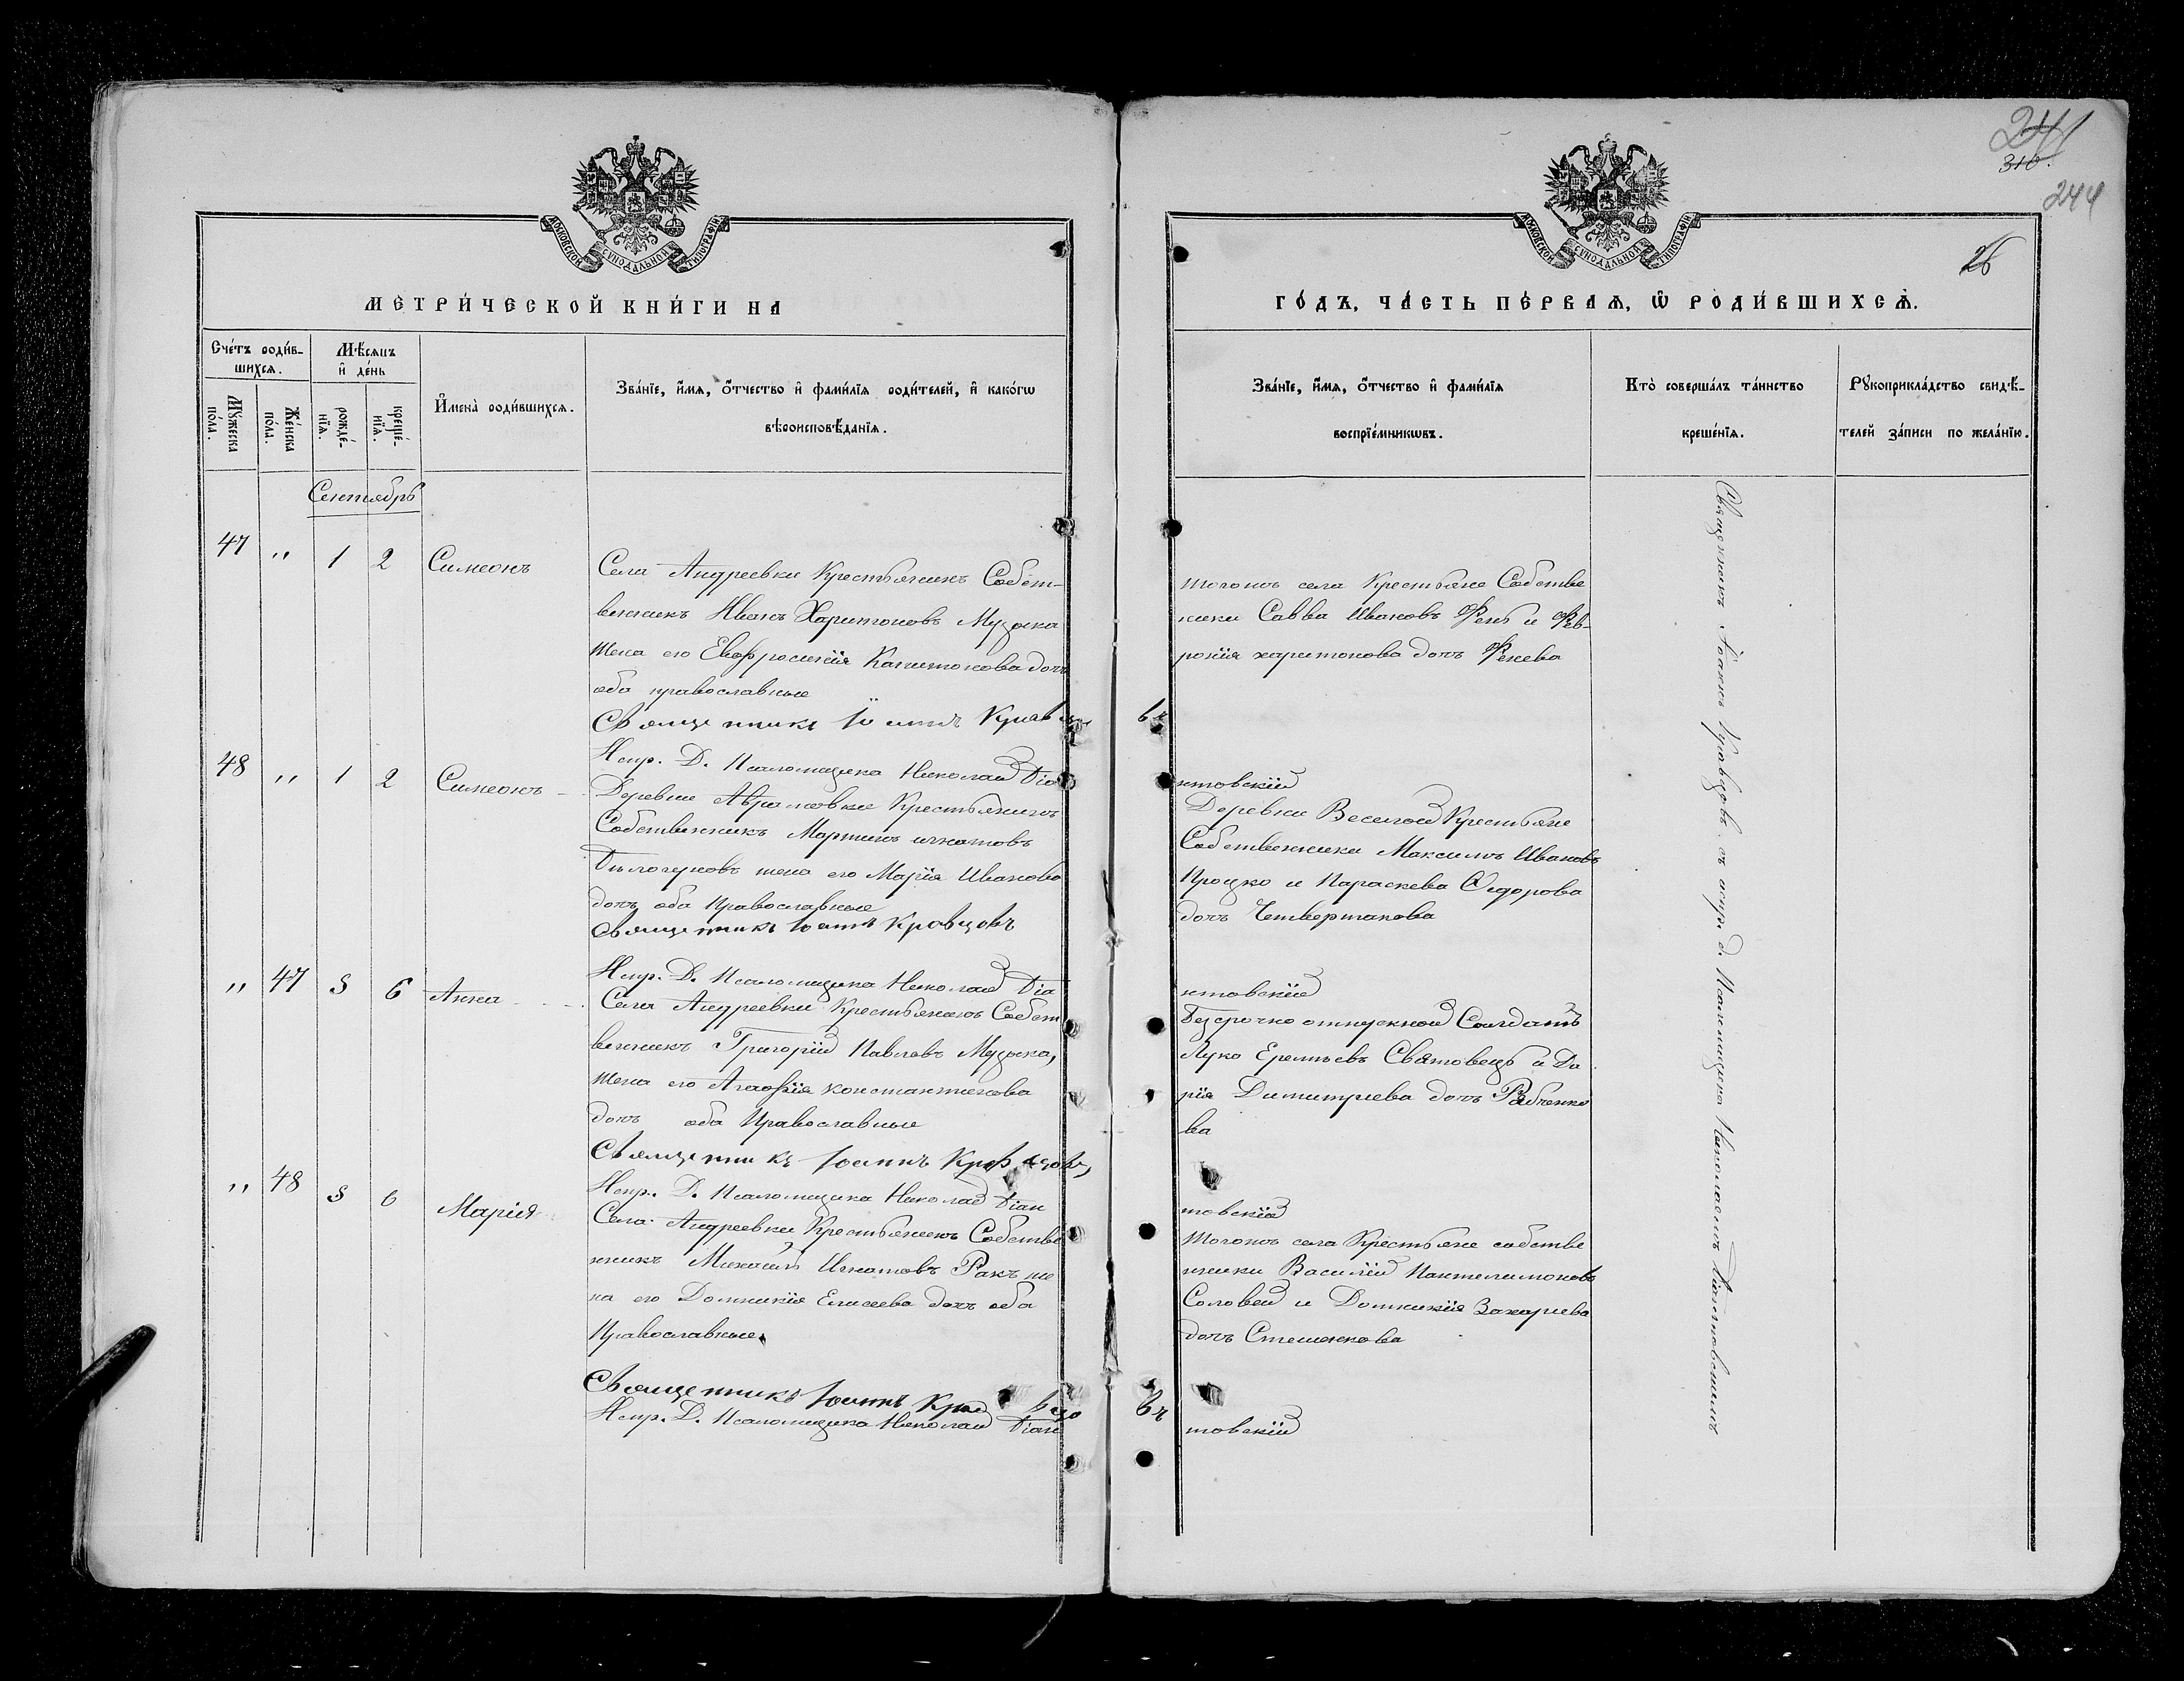 241
310.
244
26
МОСКОВСКОЙ СѴНОДАЛЬНОЙ ТИПОГРАФІИ
МЕТРИ́ЧЕСКОЙ КНИ́ГИ НА
Сче́тъ роди́в-
шихсѧ.
Мѣ́сѧцъ
и҆ де́нь
Мꙋ́жеска
по́ла.
Же́нска
по́ла.
рожде́-
нїѧ.
креще́-
нїѧ.
И҆мена̀ роди́вшихсѧ.
Зва́нїе, и҆́мѧ, ѻ҆́тчество и҆ фами́лїѧ роди́телей, и҆ како́гѡ
вѣроисповѣ́данїѧ.
Сентябрь
47 " 1 2 Симеонъ
Села Андреевки Крестьянинъ Собст-
венникъ Иванъ Харитоновъ Музыка
жена его Евфросинія Капитонова дочь
оба православные
Священникъ Іоаннъ Кравцовъ
Испр. Д. Псаломщика Николай Діа
48 " 1 2 Симеонъ
Деревни Абрамовки Крестьянинъ
Собственникъ Мартинъ Игнатовъ
жена его Марія Иванова
дочь оба Православные
Священникъ Іоаннъ Кравцовъ
Испр. Д. Псаломщика Николай Діа
" 47 5 6 Анна
Села Андреевки Крестьянинъ Собст
венникъ Григорій Павловъ Музыка,
жена его Агафія Константинова
дочь оба Православные
Священникъ Іоаннъ Кравцовъ,
Испр. Д. Псаломщика Николай Діан
" 48 5 6 Марія
Села Андреевки Крестьянинъ Собстве
нникъ Михаилъ Игнатовъ Ракъ же
на его Домникія Елисеева дочь оба
Православные.
Священникъ Іоаннъ Кравцо
Испр. Д. Псаломщика Николай Діан
МОСКОВСКОЙ СѴНОДАЛЬНОЙ ТИПОГРАФІИ
ГО́ДЪ, ЧА́СТЬ ПЕ́РВАѦ, Ѡ҆ РОДИ́ВШИХСѦ.
Зва́нїе, и҆́мѧ, ѻ҆́тчество и҆ фами́лїѧ
воспрїе́мникѡвъ.
Кто̀ соверша́лъ та́инство
креще́нїѧ.
Рꙋкоприкла́дство свидѣ́-
телей за́писи по жела́нїю.
тогожъ села Крестьяне Собстве
нники Савва Ивановъ Фень и Фев-
ронія харитонова дочь Фенева
въ
нтовскій
Деревни Веселой Крестьяне
Собственники Максимъ Ивановъ
Процко и Параскева Ѳедорова
дочь Четвертакова
нтовскій
Безсрочно отпускной Солдатъ
Лука Ереміевъ Святовецъ и Да
рія Димитріева дочь Рабченко
ва
товскій
Тогожъ села Крестьяне собстве
нники Василій Пантелимоновъ
Соловей и Домникія Захаріева
дочь Стешенкова
въ
товскій
Священникъ Іоаннъ Кравцовъ съ испр. д. Псаломщика Николаемъ Діантовскимъ